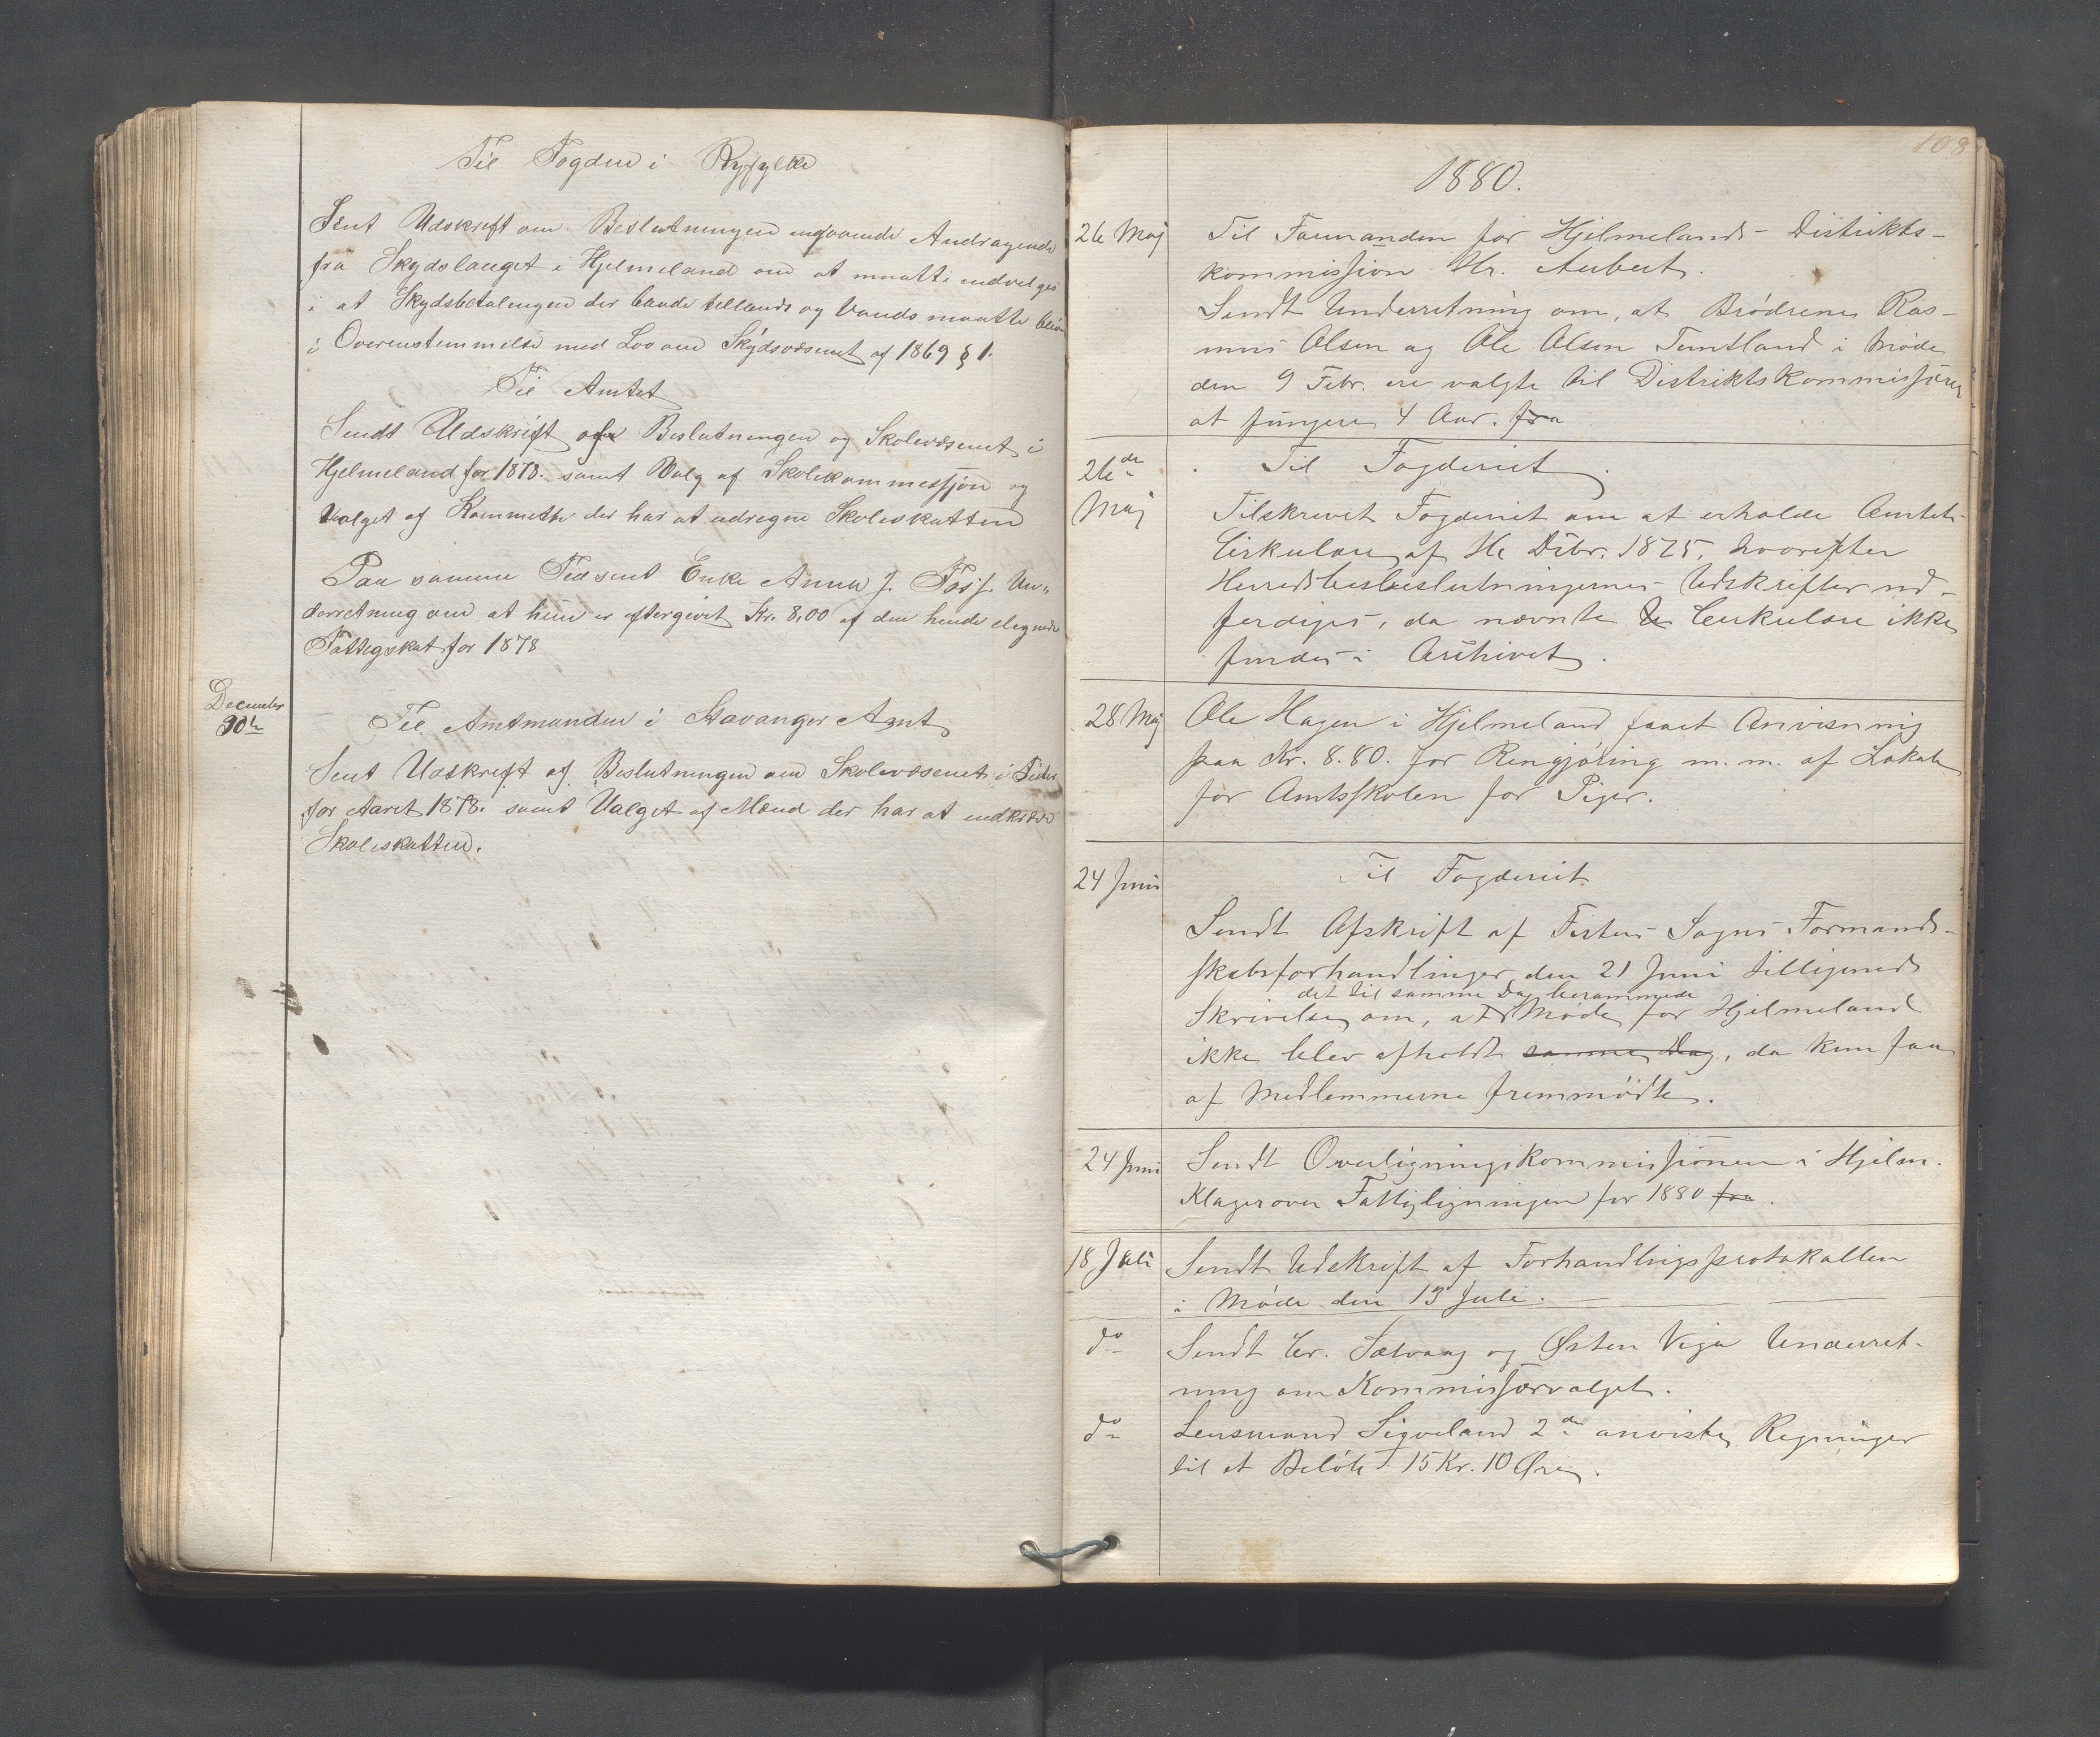 Til Fogden i Ryfylke
Sent Udskrift om Beslutningen angaaende Andragende
fra Skydslauget i Hjelmeland om at maatte
i at Skydsbetalingen der baade tillands og Vands maatte
i Overenstemmelse med Lov om Skydsvæsenet af 1869 § 1.
Til Amtet
Sendt Udskrift af Beslutningen og Skolevæsenet i
Hjelmeland for 1878. samt Valg af Skolekommessjon og
Valget af Kommette der har at udregne Skoleskatten
Paa samme Tid sent Enke Anna J. Un„
derretning om at hun er eftergivet Kr. 8,00 af den hende
Fattigskat for 1878
December
30te
Til Amtmanden i Stavanger Amt
Sent Udskrift af Beslutningen om Skolevæsenet i Fister
for Aaret 1878. samt Valget af Mænd der har at indkræve
Skoleskatten.
108
1880.
26 Maj Til Formanden for Hjelmelands Distrikts-
kommission Hr. Aubert.
Sendt Underretning om, at Brødrene Ras-
mus Olsen og Ole Olsen Tuntland i Møde
den 9 Febr. ere valgte til Distriktskommissærer
at fungere 4 Aar. fra
26de Til Fogderiet.
Maj Tilskrevet Fogderiet om at erholde Amtets
Cirkulære af Dcbr. 1875, hvorefter
Herredsbesbeslutningernes Udskrifter ud-
ferdiges, da nævnte Cirkulære ikke
findes i Arkivet.
28 Maj Ole Hagen i Hjelmeland faaet Anvisning
paa Kr. 8.80. for Rengjøring m. m. af Lokale
for Amtsskolen for Piger.
24 Juni Til Fogderiet
Sendt Afskrift af Fisters Sogns Formand-
skabsforhandlinger den 21 Juni tilligemed
det til samme Dag berammede
Skrivelse om, at Møde for Hjelmeland
ikke blev afholdt samme Dag, da kun faa
af Medlemmerne fremmødte.
24 Juni Sendt Overligningskommissionen i Hjelm.
Klager over Fattigligningen for 1880 fra.
18 Juli Sendt Udskrift af Forhandligsprotokollen
i Møde den 13 Juli.
do Sendt Chr. Sætvaag og Østen Viga Underret-
ning om Kommissærvalget.
do Lensmand Sigveland 2de anviste Regninger
til et Beløb 15 Kr. 10 Øre.